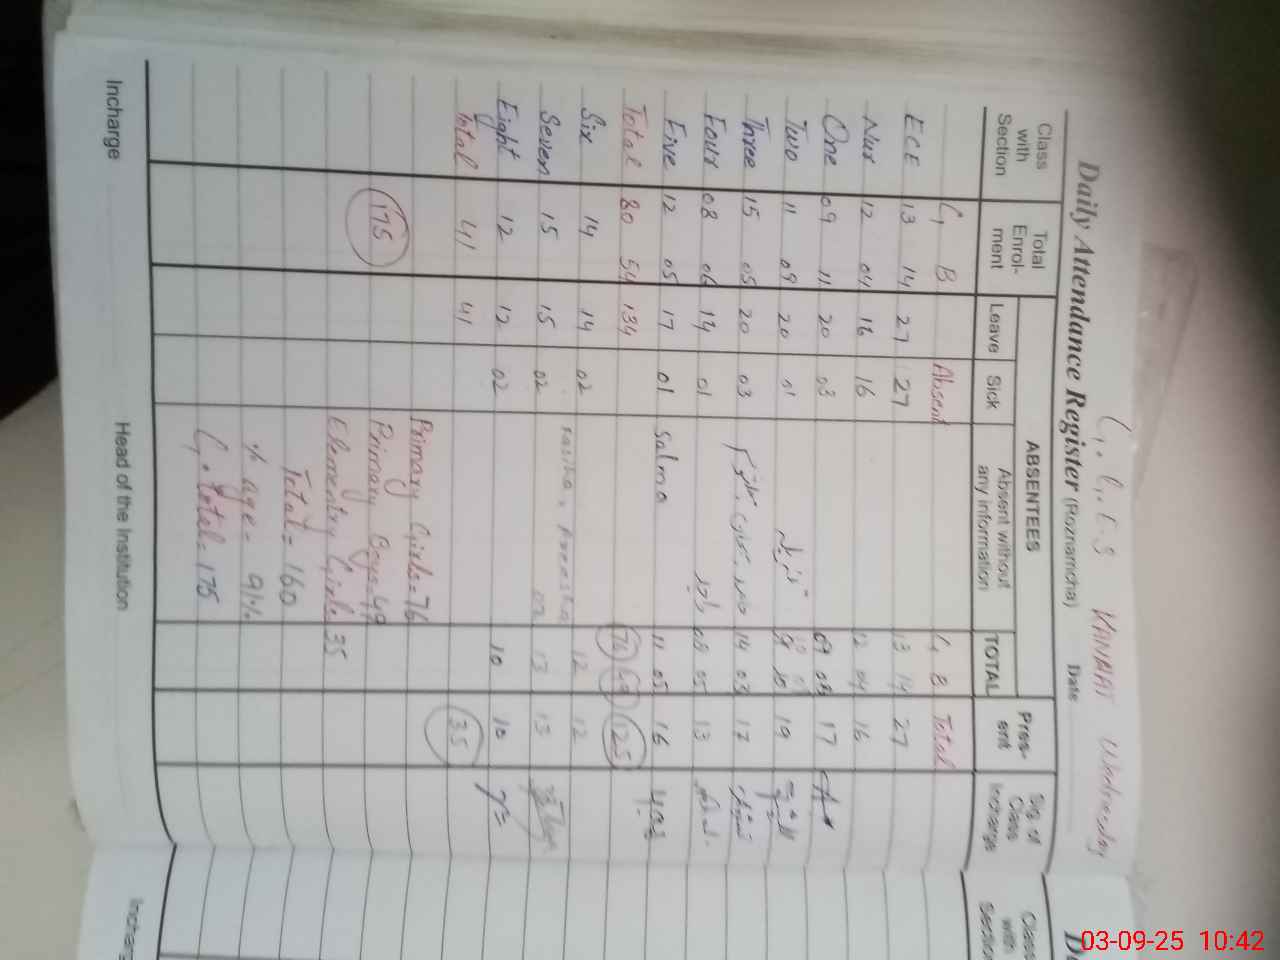 G.G.E.S KANAIAT Wednesday
Daily Attendance Register (Roznamcha) Date
Class with Section Total Enrol-ment ABSENTEES Pres-ent Sig. of Class Incharge
Leave Sick Absent without any information TOTAL
G B Absent G B Total
ECE 13 14 27 27 13 14 27
Nur 12 04 16 16 12 04 16
One 09 11 20 03 09 08 17
Two 11 09 20 01 19
Three 15 05 20 03 14 03 17
Four 08 06 14 01 08 05 13
Five 12 05 17 01 Salma 11 05 16
Total 80 54 134 76 49 125
Six 14 14 02 12 12
Seven 15 15 02 13 13
Eight 12 12 02 10 10
Total 41 41 35
Primary Girls = 76
175 Primary Boys = 49
Elementry Girls 35
Total = 160
% age = 91%
G. Total = 175
Incharge Head of the Institution
Class with Section
Incharg
03-09-25 10:42